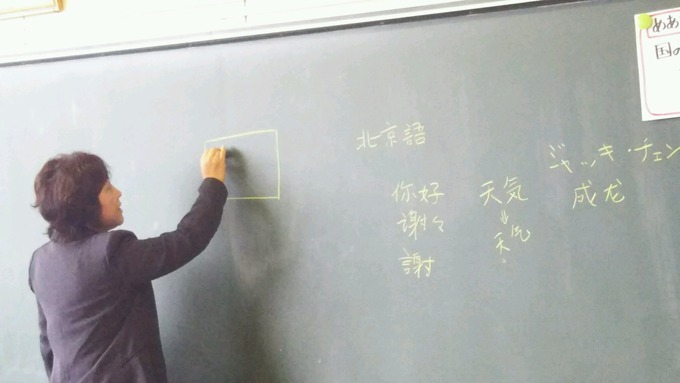 めあ
国の
北京語
ジャッキ・チェン
你好
天気
成龙
謝々
⇓
天气
謝